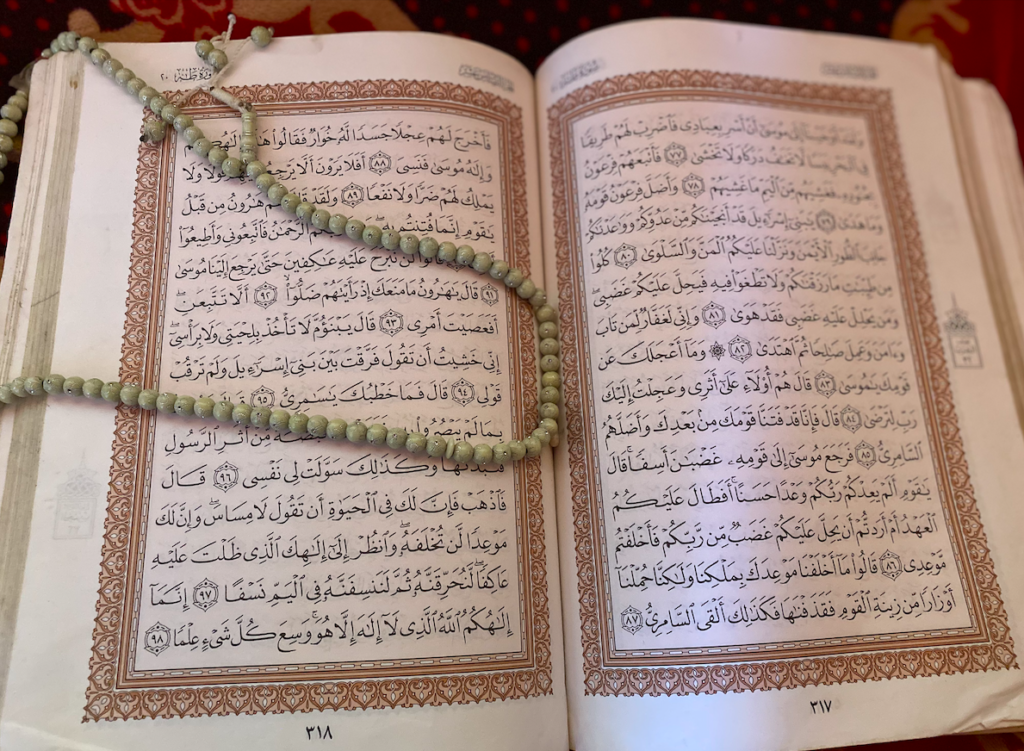 وَلَقَدْ أَوْحَيْنَآ إِلَىٰ مُوسَىٰٓ أَنْ أَسْرِ بِعِبَادِى فَٱضْرِبْ لَهُمْ طَرِيقًا
فِى ٱلْبَحْرِ يَبَسًا لَّا تَخَٰفُ دَرَكًا وَلَا تَخْشَىٰ ٧٧ فَأَتْبَعَهُمْ فِرْعَوْنُ
بِجُنُودِهِۦ فَغَشِيَهُم مِّنَ ٱلْيَمِّ مَا غَشِيَهُمْ ٧٨ وَأَضَلَّ فِرْعَوْنُ قَوْمَهُۥ
وَمَا هَدَىٰ ٧٩ يَٰبَنِىٓ إِسْرَٰٓءِيلَ قَدْ أَنجَيْنَٰكُم مِّنْ عَدُوِّكُمْ وَوَٰعَدْنَٰكُمْ
جَانِبَ ٱلطُّورِ ٱلْأَيْمَنَ وَنَزَّلْنَا عَلَيْكُمُ ٱلْمَنَّ وَٱلسَّلْوَىٰ ٨٠ كُلُوا۟
مِن طَيِّبَٰتِ مَا رَزَقْنَٰكُمْ وَلَا تَطْغَوْا۟ فِيهِ فَيَحِلَّ عَلَيْكُمْ غَضَبِى
وَمَن يَحْلِلْ عَلَيْهِ غَضَبِى فَقَدْ هَوَىٰ ٨١ وَإِنِّى لَغَفَّارٌ لِّمَن تَابَ
وَءَامَنَ وَعَمِلَ صَٰلِحًا ثُمَّ ٱهْتَدَىٰ ٨٢ ۞ وَمَآ أَعْجَلَكَ عَن
قَوْمِكَ يَٰمُوسَىٰ ٨٣ قَالَ هُمْ أُو۟لَآءِ عَلَىٰٓ أَثَرِى وَعَجِلْتُ إِلَيْكَ
رَبِّ لِتَرْضَىٰ ٨٤ قَالَ فَإِنَّا قَدْ فَتَنَّا قَوْمَكَ مِنۢ بَعْدِكَ وَأَضَلَّهُمُ
ٱلسَّامِرِىُّ ٨٥ فَرَجَعَ مُوسَىٰٓ إِلَىٰ قَوْمِهِۦ غَضْبَٰنَ أَسِفًا ۚ قَالَ
يَٰقَوْمِ أَلَمْ يَعِدْكُمْ رَبُّكُمْ وَعْدًا حَسَنًا ۚ أَفَطَالَ عَلَيْكُمُ
ٱلْعَهْدُ أَمْ أَرَدتُّمْ أَن يَحِلَّ عَلَيْكُمْ غَضَبٌ مِّن رَّبِّكُمْ فَأَخْلَفْتُم
مَّوْعِدِى ٨٦ قَالُوا۟ مَآ أَخْلَفْنَا مَوْعِدَكَ بِمَلْكِنَا وَلَٰكِنَّا حُمِّلْنَآ
أَوْزَارًا مِّن زِينَةِ ٱلْقَوْمِ فَقَذَفْنَٰهَا فَكَذَٰلِكَ أَلْقَى ٱلسَّامِرِىُّ ٨٧
٣١٧
سورة طه ٢٠
فَأَخْرَجَ لَهُمْ عِجْلًا جَسَدًا لَّهُۥ خُوَارٌ فَقَالُوا۟ هَٰذَآ إِلَٰهُكُمْ
وَإِلَٰهُ مُوسَىٰ فَنَسِىَ ٨٨ أَفَلَا يَرَوْنَ أَلَّا يَرْجِعُ قَوْلًا وَلَا
يَمْلِكُ لَهُمْ ضَرًّا وَلَا نَفْعًا ٨٩ وَلَقَدْ هَٰرُونُ مِن قَبْلُ
يَٰقَوْمِ إِنَّمَا فُتِنتُم بِهِۦ ۖ ٱلرَّحْمَٰنُ فَٱتَّبِعُونِى وَأَطِيعُوٓا۟
قَالُوا۟ لَن نَّبْرَحَ عَلَيْهِ عَٰكِفِينَ حَتَّىٰ يَرْجِعَ إِلَيْنَا مُوسَىٰ
٩١ قَالَ يَٰهَٰرُونُ مَا مَنَعَكَ إِذْ رَأَيْتَهُمْ ضَلُّوٓا۟ ٩٢ أَلَّا تَتَّبِعَنِ ۖ
أَفَعَصَيْتَ أَمْرِى ٩٣ قَالَ يَبْنَؤُمَّ لَا تَأْخُذْ بِلِحْيَتِى وَلَا بِرَأْسِىٓ ۖ
إِنِّى خَشِيتُ أَن تَقُولَ فَرَّقْتَ بَيْنَ بَنِىٓ إِسْرَٰٓءِيلَ وَلَمْ تَرْقُبْ
قَوْلِى ٩٤ قَالَ فَمَا خَطْبُكَ يَٰسَٰمِرِىُّ ٩٥ قَالَ
بِمَا لَمْ يَبْصُرُوا۟ قَبْضَةً مِّنْ أَثَرِ ٱلرَّسُولِ
فَنَبَذْتُهَا وَكَذَٰلِكَ سَوَّلَتْ لِى نَفْسِى ٩٦ قَالَ
فَٱذْهَبْ فَإِنَّ لَكَ فِى ٱلْحَيَوٰةِ أَن تَقُولَ لَا مِسَاسَ ۖ وَإِنَّ لَكَ
مَوْعِدًا لَّن تُخْلَفَهُۥ ۖ وَٱنظُرْ إِلَىٰٓ إِلَٰهِكَ ٱلَّذِى ظَلْتَ عَلَيْهِ
عَاكِفًا ۖ لَّنُحَرِّقَنَّهُۥ ثُمَّ لَنَنسِفَنَّهُۥ فِى ٱلْيَمِّ نَسْفًا ٩٧ إِنَّمَآ
إِلَٰهُكُمُ ٱللَّهُ ٱلَّذِى لَآ إِلَٰهَ إِلَّا هُوَ ۚ وَسِعَ كُلَّ شَىْءٍ عِلْمًا ٩٨
٣١٨